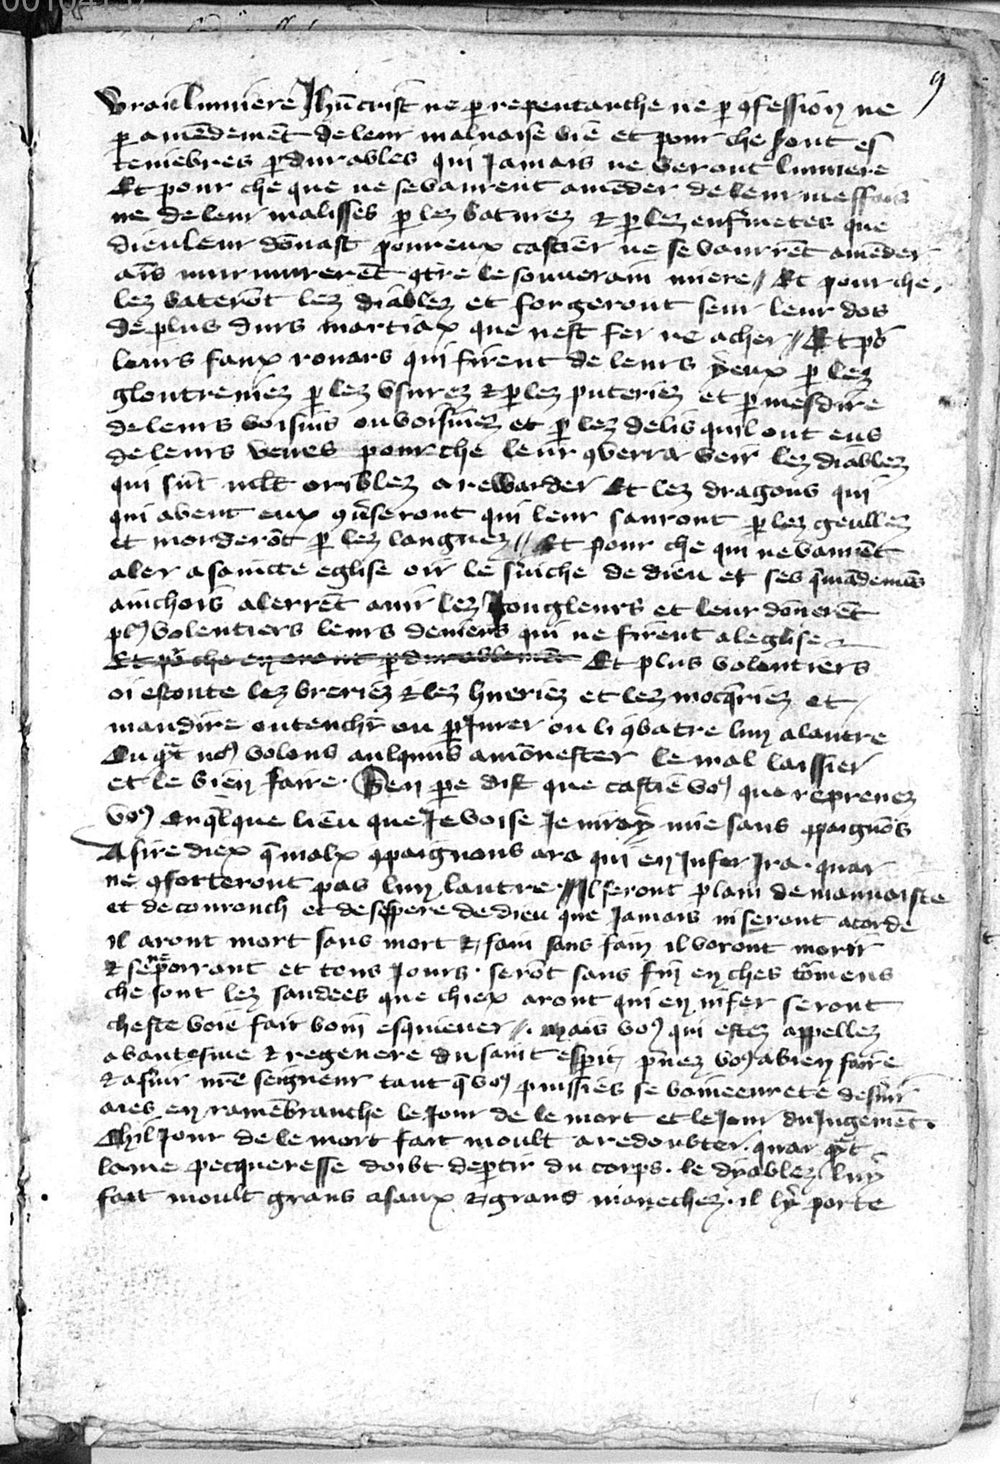 00104137
9
vraie lumiere Jhūcrist ne p repentanche ne p 9fession ne
p amēdemēt de leur malvaise vie et pour che sont es
teniebres pdurables qui jamais ne veront lumiere
Et pour che que ne se vaurent amēder de leur meffais
ne de leur malisses p lez batures & p lez enfmetes que
dieu leur dōnast pour eux castier ne se vaurrēt amēder
ais murmurerēt 9tre le souverain miere // Et pour che
lez baterōt lez diablez et forgeront seur leur dos
de plus durs martiax que nest fer ne acher // Et po
leurs faux rouars qui firent de leurs yeux p lez
gloutreniez p lez usurez & p lez puteriez et p mesdire
de leurs voisins ou voisinez et p lez delis quil ont eus
de leurs veues pour che leur 9verra veir lez diablez
qui sūt mlt oriblez a rewarder Et lez dragons qui
qui avent eux 9vseront qui leur sauront p lez geullez
et morderōt p lez languez // Et pour che qui ne vaurēt
aler a saincte eglise oir le sviche de dieu et ses 9mādemēs
ainchois alerrēt ouir lez Jongleurs et leur dōnerēt
pl9 volentiers leurs deniers qui ne firent a leglise
Et po che en aront pdurablemēt Et plus volentiers
oi escoute lez breriez & lez hueriez et lez mocqriez et
maudire ou tenchr ou pJurer ou li 9batre lun a lautre
Du qāt no9 volons aulquns amōnester le mal laissier
et le bien faire. Ben pe dist que castie vo9 que reprenez
vo9 En qlque lieu que Je voise Je niray mie sans 9paignōs
A sire diex q malx 9paignons ara qui en Infer Ira. quar
ne 9forteront pas lun lautre // Il seront plain de mauvaiste
et de courouch et desespere de dieu que jamais ni seront acorde
il aront mort sans mort & fain sans fain il voront morir
& se ne porrant et tous Jours. serōt sans fin en ches tōmens
che sont lez saudees que chiex aront qui en infer seront
cheste voie fait bon esquiever //. mais vo9 qui estez appellez
a bautesme & regenere du saint esprit pnez vo9 a bien faire
& a svir nre seigneur tant q vo9 puissies se vaineeurete desvir
aies en ramēbranche le Jour de le mort et le Jour du Jugemēt.
Chil Jour de le mort fait moult a redoubter. quar qāt
lame pecqueresse doibt deptir du corps. le dyablez luy
fait moult grans asaux & grans manechez. il ly porte